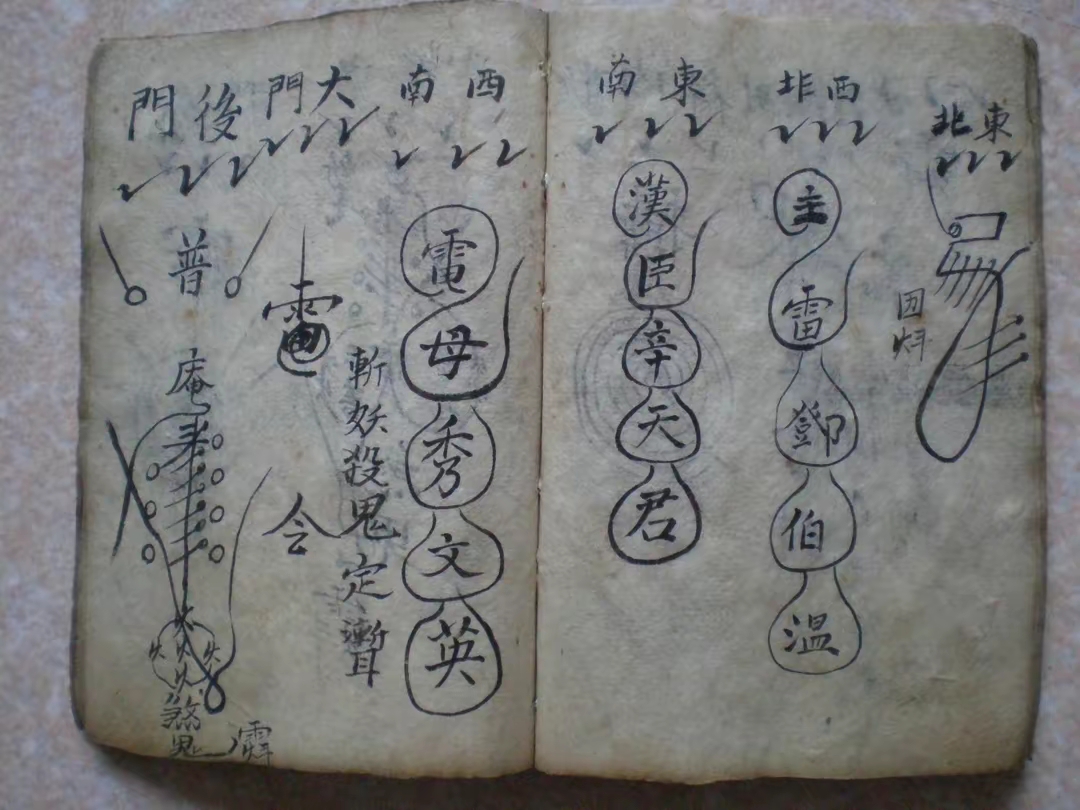 東北
西北
主雷鄧伯温
東南
漢臣辛天君
西南
電母秀文英
斬妖殺鬼定
大門
令
後門
普庵
鬼